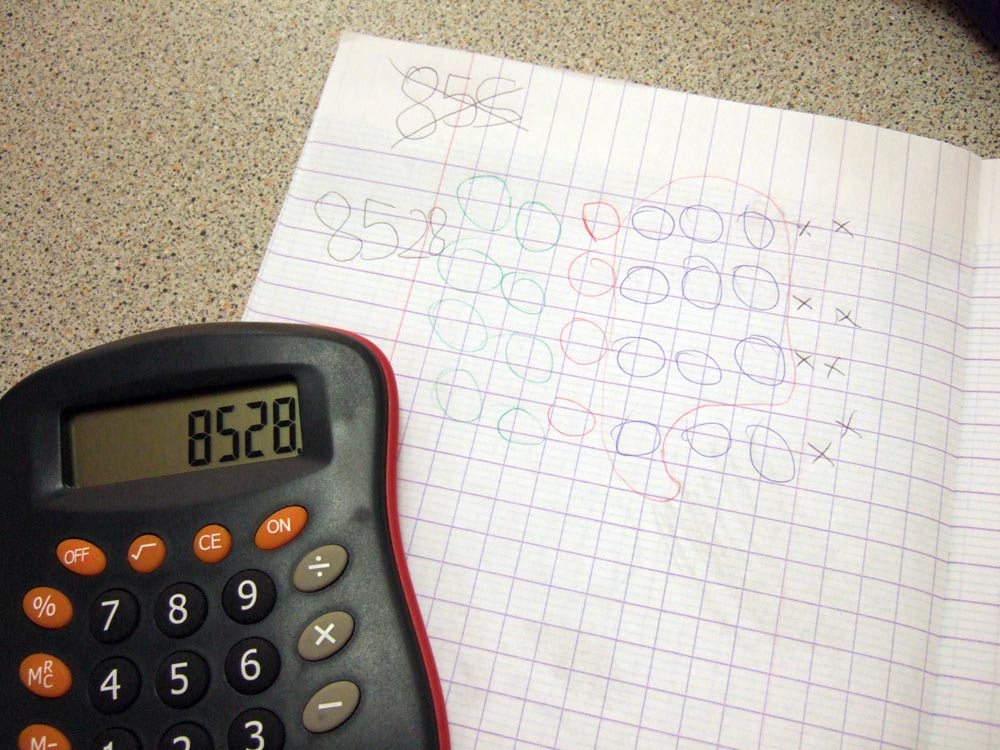 8528
8528.
OFF √ CE ON
÷
% 7 8 9
×
MRC 4 5 6
−
M− 1 2 3
× ×
× ×
× ×
× ×